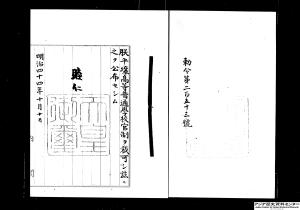 勅令第二百五十三號
朕平壤高等普通學校官制ヲ裁可シ茲ニ
之ヲ公布セシム
睦仁
天皇御璽
明治四十四年十月十
アジア歴史資料センター